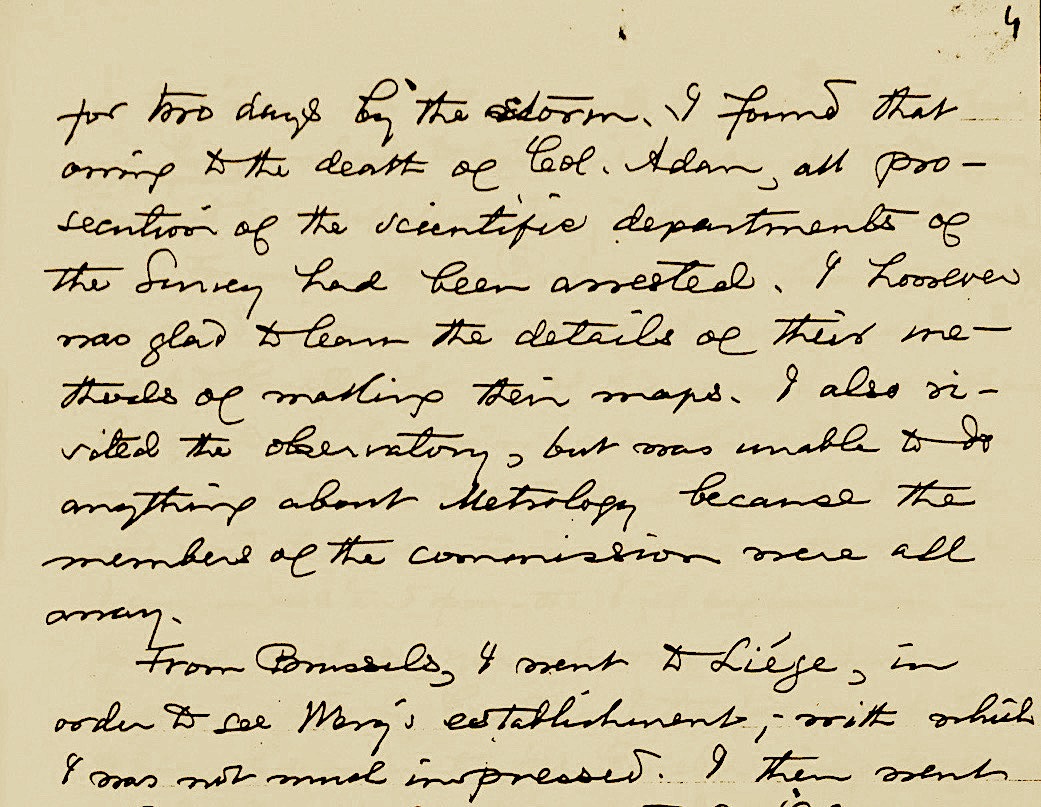 4
for two days by the storm. I found that
owing to the death of Col. Adan, all pro-
secution of the scientific departments of
the Survey had been arrested. I however
was glad to learn the details of their me-
thods of making their maps. I also vi-
sited the observatory, but was unable to do
anything about Metrology because the
members of the commission were all
away.
From Brussels, I went to Liége, in
order to see 's establishment, - with which
I was not much impressed. I then went